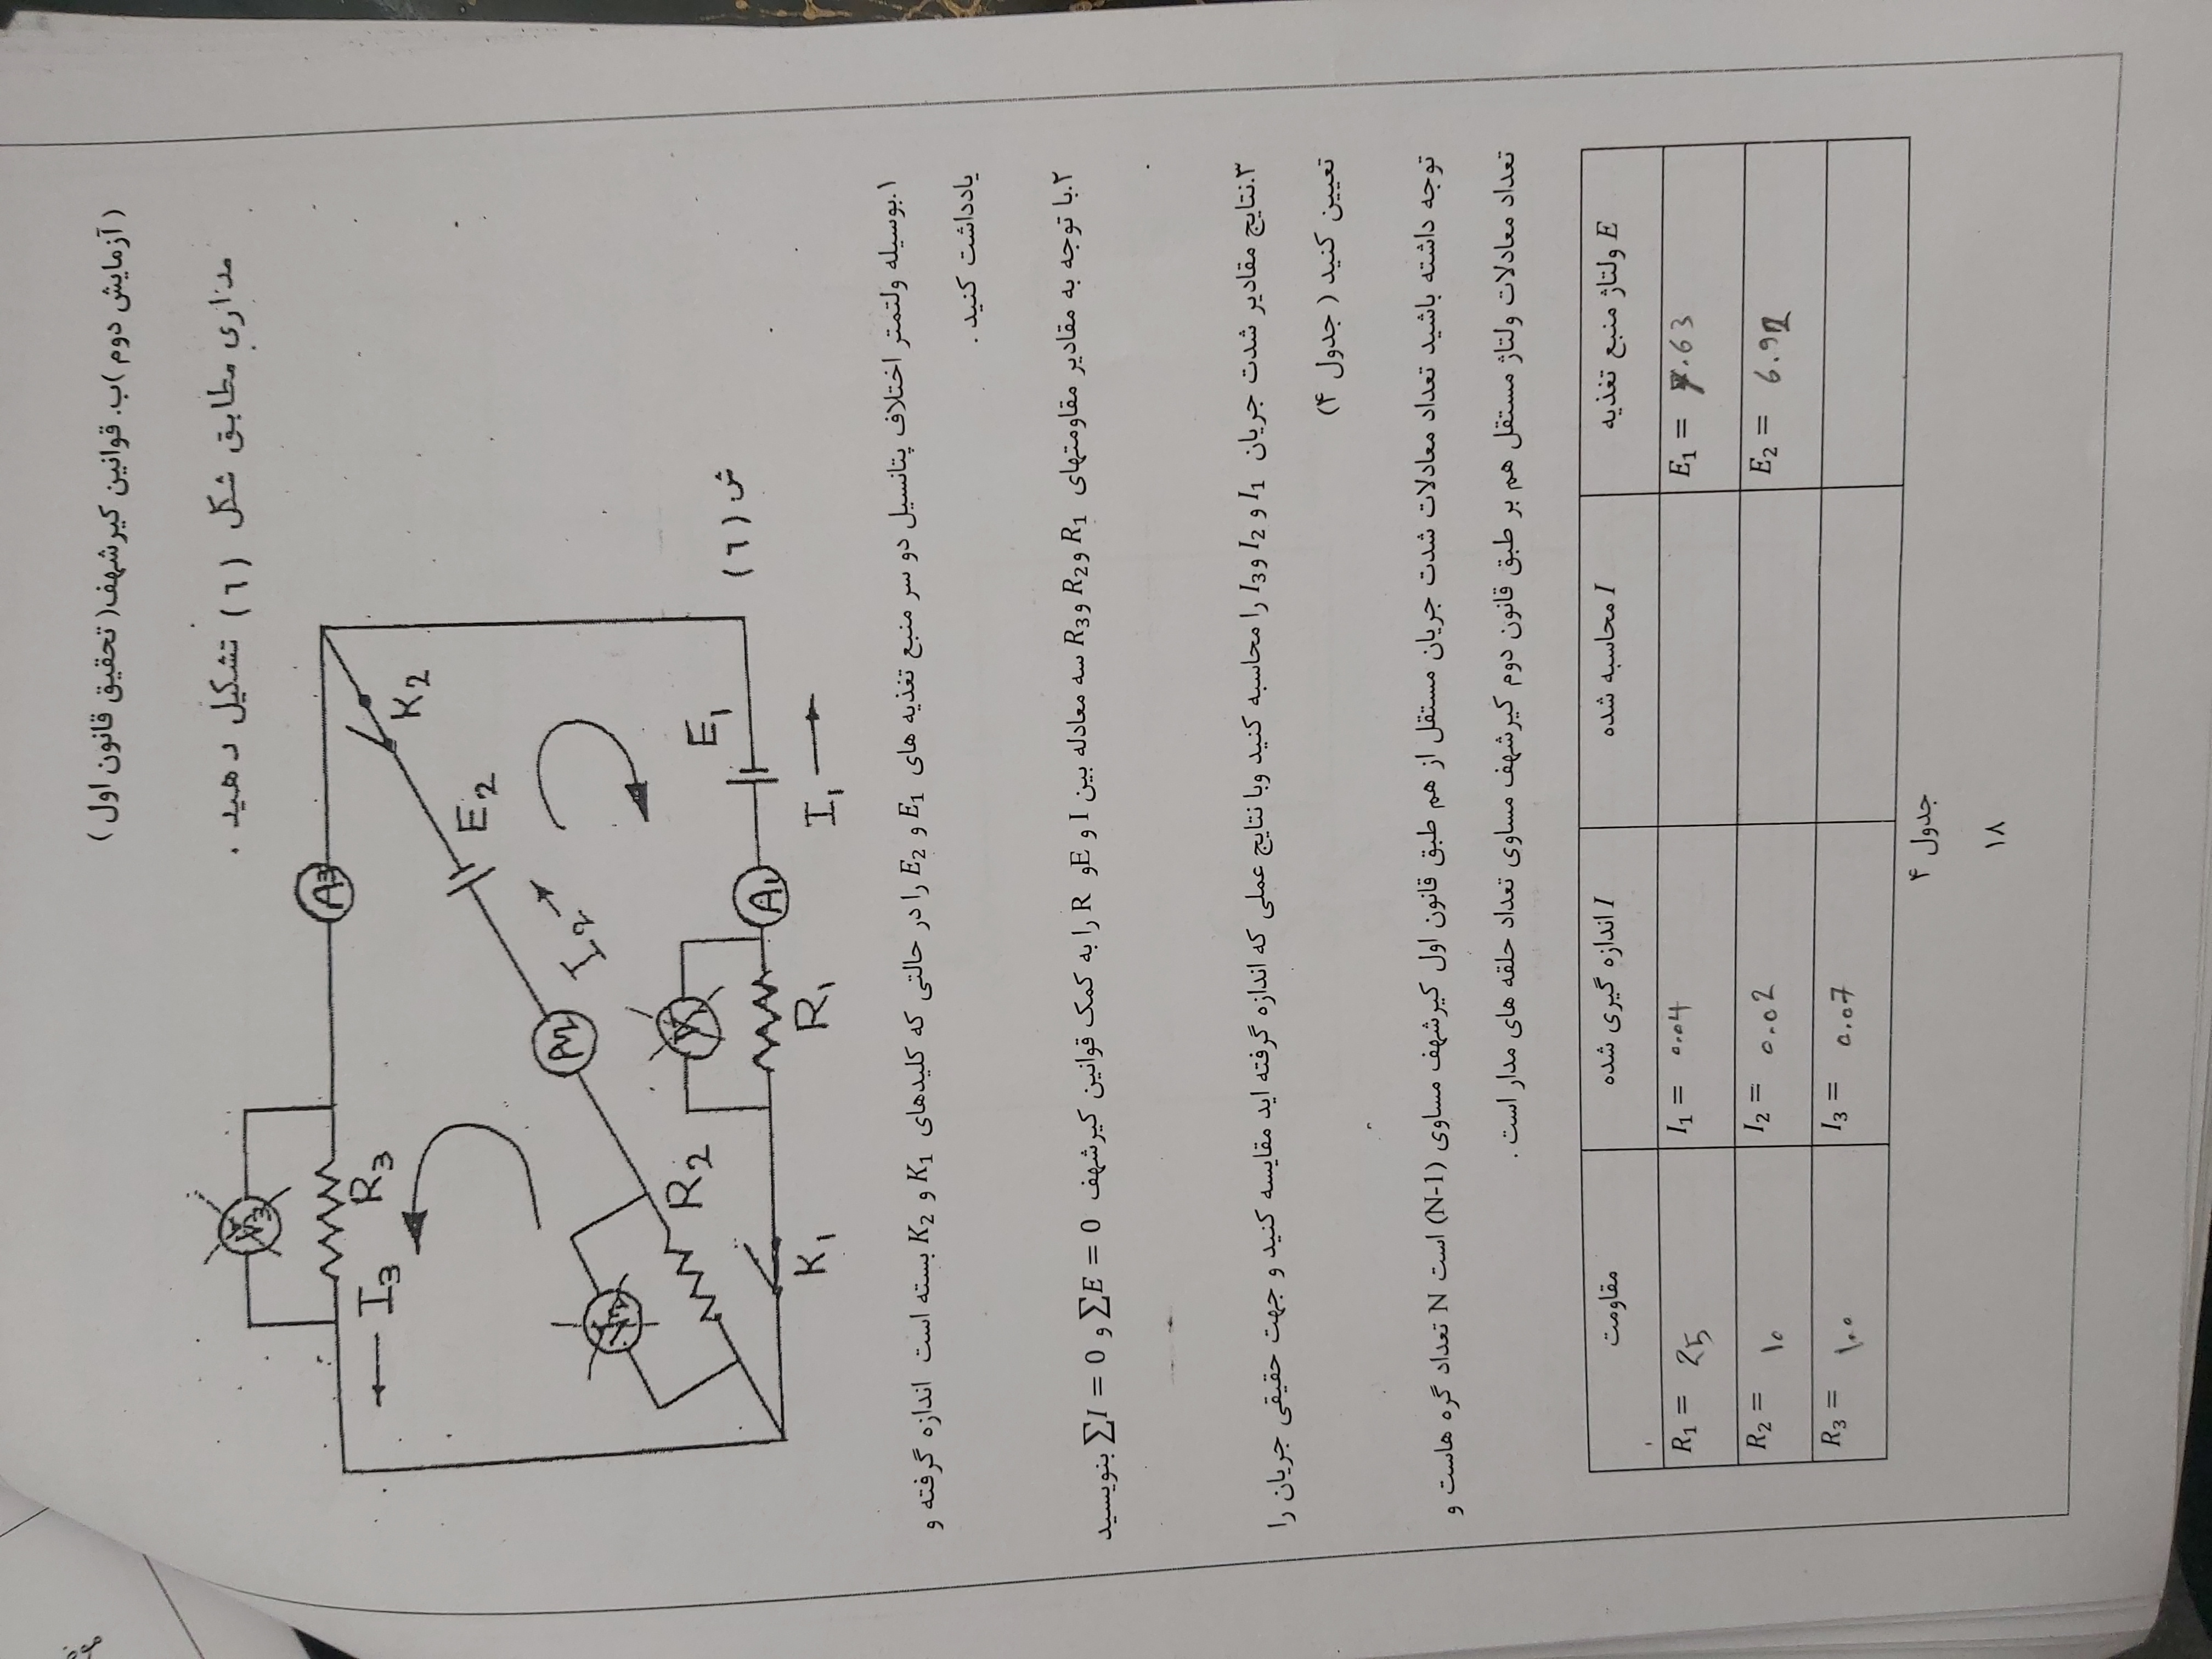 ( آزمایش دوم )ب. قوانین کیرشهف( تحقیق قانون اول )
مداری مطابق شکل (٦) تشکیل دهید .
V3
A3
I3
R3
K2
E2
A2
I2
V2
R2
V1
E1
A1
ش (٦)
K1
R1
I1
۱.بوسیله ولتمتر اختلاف پتانسیل دو سر منبع تغذیه های E1 و E2 را در حالتی که کلیدهای K1 و K2 بسته است اندازه گرفته و
یادداشت کنید .
۲.با توجه به مقادیر مقاومتهای R1 وR2 وR3 سه معادله بین I و Eو R را به کمک قوانین کیرشهف ∑E = 0 و ∑I = 0 بنویسید
.
۳.نتایج مقادیر شدت جریان I1 و I2 وI3 را محاسبه کنید وبا نتایج عملی که اندازه گرفته اید مقایسه کنید و جهت حقیقی جریان را
تعیین کنید ( جدول ۴)
توجه داشته باشید تعداد معادلات شدت جریان مستقل از هم طبق قانون اول کیرشهف مساوی (N-1) است N تعداد گره هاست و
تعداد معادلات ولتاژ مستقل هم بر طبق قانون دوم کیرشهف مساوی تعداد حلقه های مدار است .
E ولتاژ منبع تغذیه I محاسبه شده I اندازه گیری شده مقاومت
R1 = 25 I1 = 0.04 E1 = 7.63
R2 = ۱۰ I2 = 0.02 E2 =
R3 = ۱۰۰ I3 = 0.07
جدول ۴
۱۸